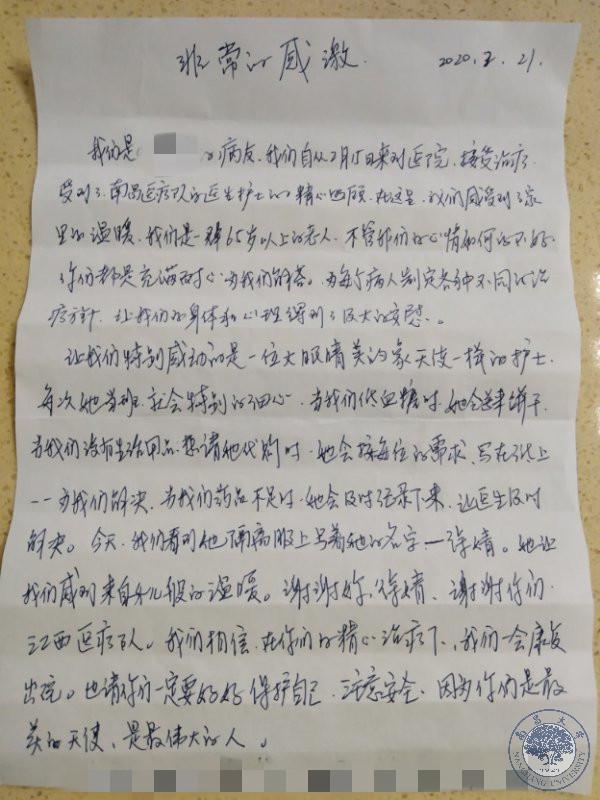 非常的感激. 2020.2.21.
我们是 的病友,我们自从2月15日来到医院,接受治疗
受到了南昌医疗队的医生护士的精心照顾,在这里,我们感受到了家
里的温暖,我们是一群65岁以上的老人,不管我们的心情如何的不好
你们都是充满耐心为我们解答。为每个病人制定各种不同的治
疗方针,让我们的身体和心理得到了极大的安慰。
让我们特别感动的是一位大眼睛美的象天使一样的护士.
每次她当班就会特别的细心.当我们低血糖时,她会送来饼干.
当我们没有生活用品,想请她代购时.她会按每位的需求,写在纸上
一一为我们解决,当我们药品不足时,她会及时记录下来,让医生及时
解决。今天,我们看到她隔离服上写着她的名字—徐婧。她让
我们感到来自女儿般的温暖。谢谢你,徐婧,谢谢你们.
江西医疗队人。我们相信,在你们的精心治疗下,我们一会康复
出院。也请你们一定要好好保护自己,注意安全,因为你们是最
美的天使,是最伟大的人。
南昌大学
NANCHANG UNIVERSITY
1921